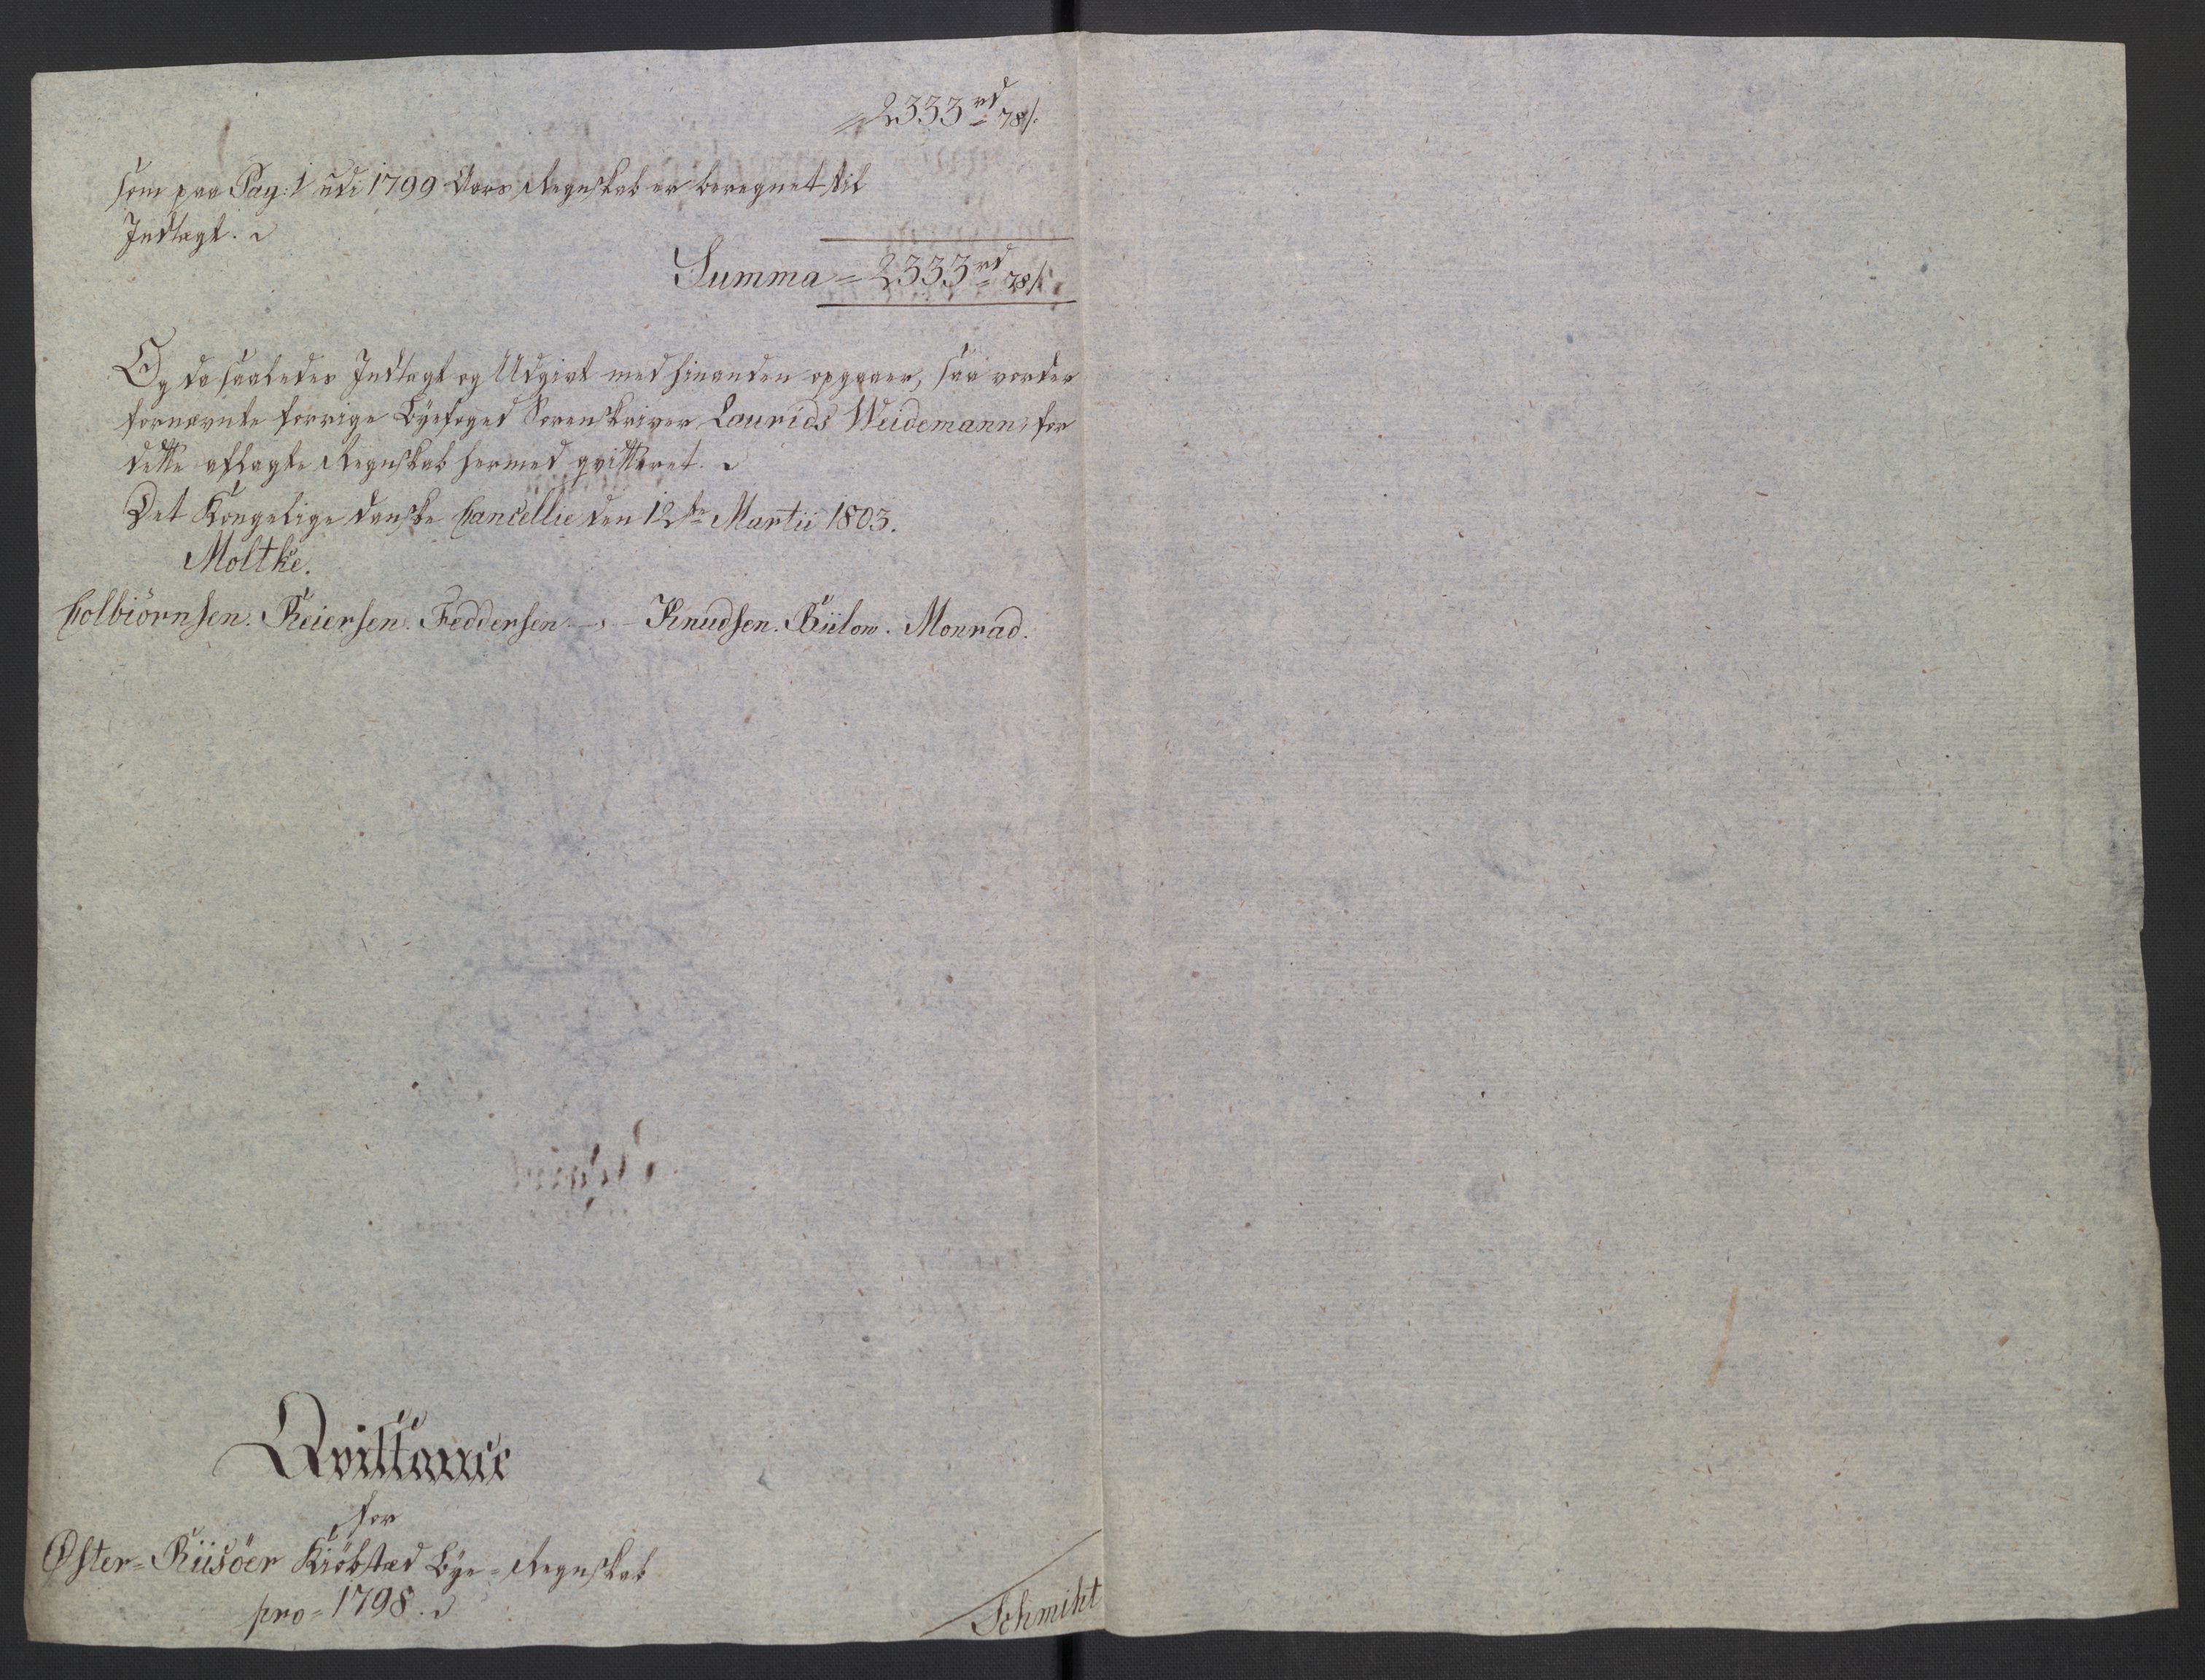 2333 rd 78 s.
som paa Pag: 1 udi 1799 Aars Regnskab er beregnet til
Indtægt.
Summa = 2333 rd 78 s.
Og da saaledes Indtægt og Udgivt med hinanden opgaaer, saa vorder
fornævnte forrige Byefoged Sorenskriver Laurids Weidemann, for
dette aflagte Regnskab hermed qvitteret.
Det Kongelige danske Cancellie den 12te Martii 1803.
Moltke.
Colbiörnsen. Reiersen. Feddersen. — Knudsen. Bülow. Monrad.
Qvittance
for
Øster-Riisöer Kiöbstæd Bye-Regnskab
pro 1798.
Schmiht